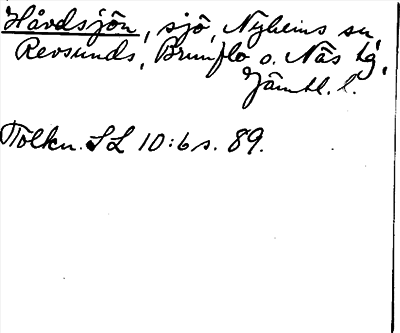 Håvdsjön, sjö, Nyhems sn,
Revsunds, Brunflo o. Näs tg,
Jämtl. l.
Tolkn. SL 10:6 s. 89.